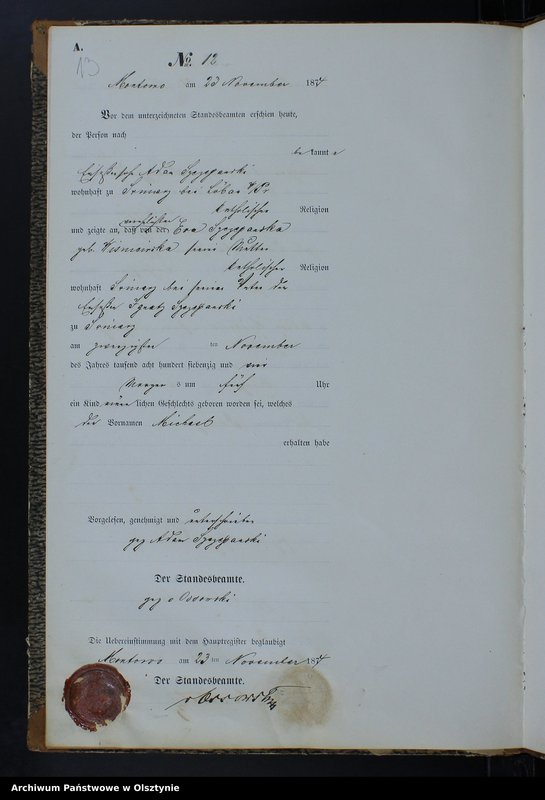 A.
13
No. 12
Montowo am 23 November 1874
Vor dem unterzeichneten Standesbeamten erschien heute,
der Person nach
bekannt
Adam Szczepanski
wohnhaft zu bei Löbau W/Pr
katholischer Religion
und zeigte an, daß von der Eva Szczepanska
geb. seine Mutter
katholischer Religion
wohnhaft bei seinem Vater
Ignatz Szczepanski
zu
am zwanzigsten ten November
des Jahres tausend acht hundert siebenzig und vier
Morgens um fünf Uhr
ein Kind männlichen Geschlechts geboren worden sei, welches
die Vornamen Michael
erhalten habe
Vorgelesen, genehmigt und unterschrieben
gez Adam Szczepanski
Der Standesbeamte.
gez v Ossowski
Die Uebereinstimmung mit dem Hauptregister beglaubigt
Montowo am 23 ten November 1874
Der Standesbeamte.
v Ossowski
Archiwum Państwowe w Olsztynie